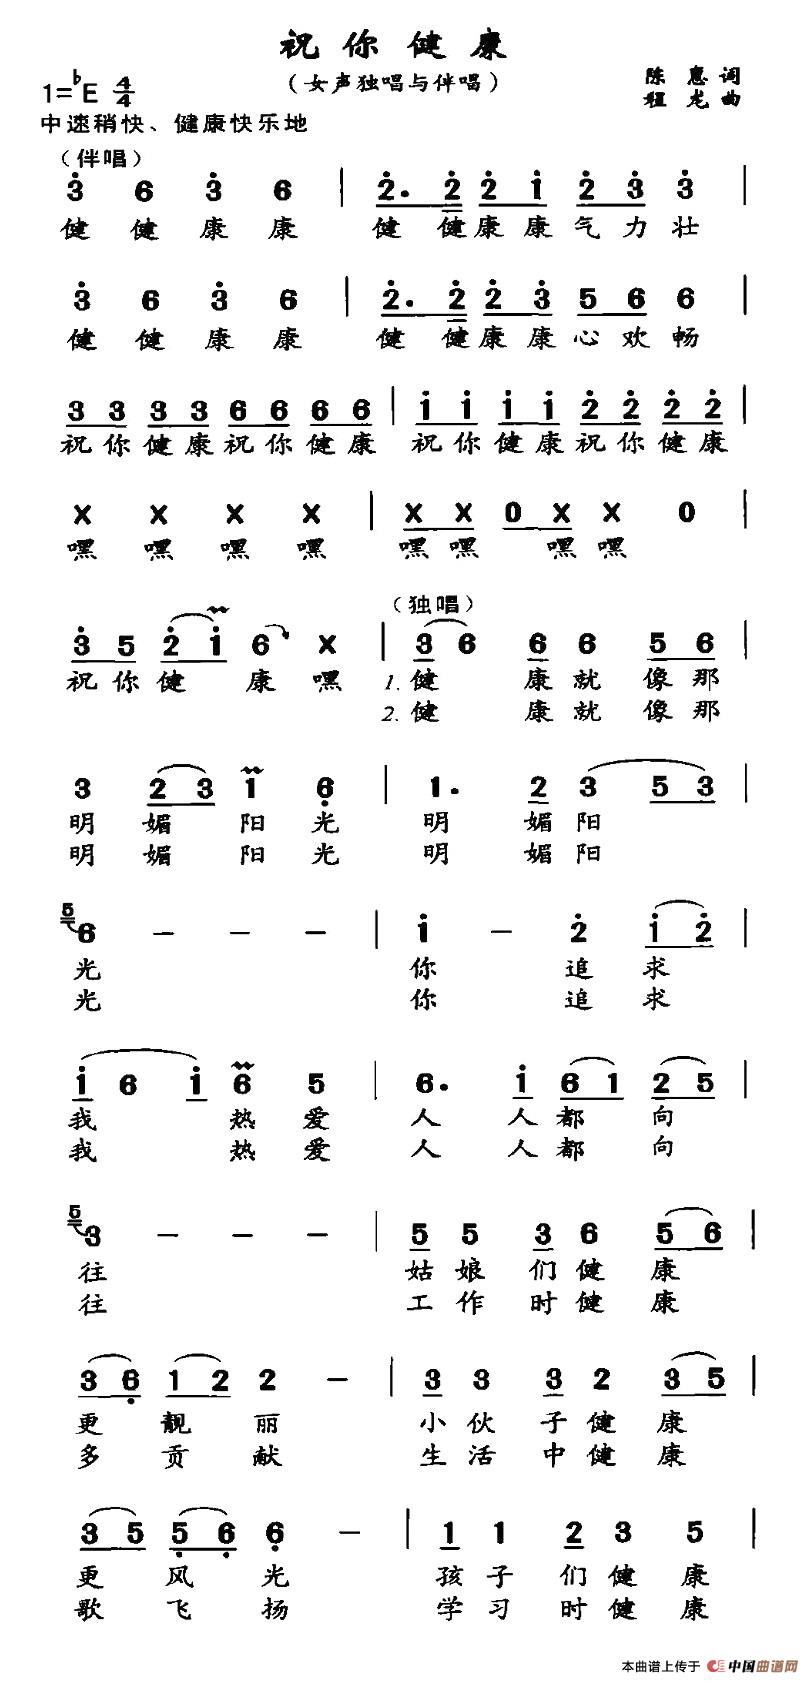 祝你健康
（女声独唱与伴唱）
陈惠词
程龙曲
1=♭E 4/4
中速稍快、健康快乐地
（伴唱）
3 6 3 6 | 2. 2 2 1 2 3 3 |
健 健 康 康 健 健康 康 气 力 壮
3 6 3 6 | 2. 2 2 3 5 6 6 |
健 健 康 康 健 健康 康 心 欢 畅
3 3 3 3 6 6 6 6 | 1 1 1 1 2 2 2 2 |
祝你健康祝你健康 祝你健康祝你健康
X X X X | X X 0 X X 0 |
嘿 嘿 嘿 嘿 嘿嘿 嘿嘿
（独唱）
3 5 2 1 6 X | 3 6 6 6 5 6 |
祝你健 康嘿 1.健 康就 像那
2.健 康就 像那
3 2 3 1 6 | 1. 2 3 5 3 |
明 媚 阳 光 明 媚阳
明 媚 阳 光 明 媚阳
5 6 - - - | 1 - 2 1 2 |
光 你 追 求
光 你 追 求
1 6 1 6 5 | 6. 1 6 1 2 5 |
我 热 爱 人 人都 向
我 热 爱 人 人都 向
5 3 - - - | 5 5 3 6 5 6 |
往 姑 娘 们健 康
往 工 作 时健 康
3 6 1 2 2 - | 3 3 3 2 3 5 |
更 靓 丽 小 伙 子健 康
多 贡 献 生 活 中健 康
3 5 5 6 6 - | 1 1 2 3 5 |
更 风 光 孩 子 们 健 康
歌 飞 扬 学 习 时 健 康
本曲谱上传于 中国曲谱网